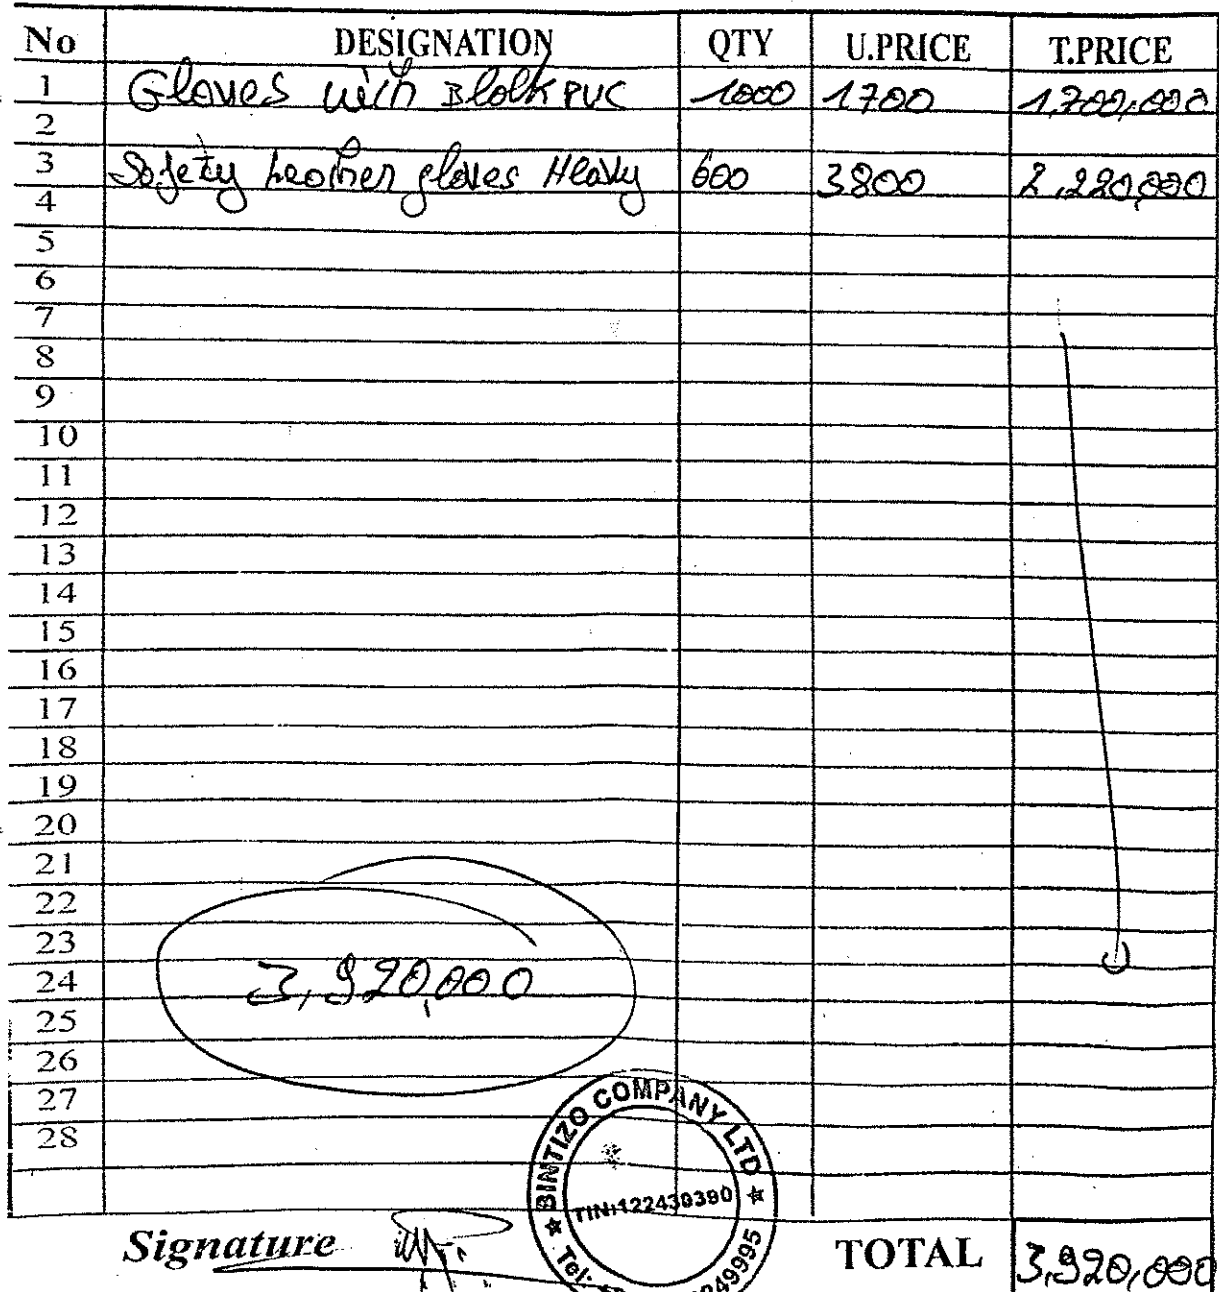 No DESIGNATION QTY U.PRICE T.PRICE
1 Gloves with Blolk PVC 1000 1700 1,700,000
2
3 Safety Leather gloves Heavy 600 3800 2,220,000
4
5
6
7
8
9
10
11
12
13
14
15
16
17
18
19
20
21
22
23
24 3,920,000
25
26
27
28
BINTIZO COMPANY LTD
TIN:122430390
Tel:
Signature TOTAL 3,920,000